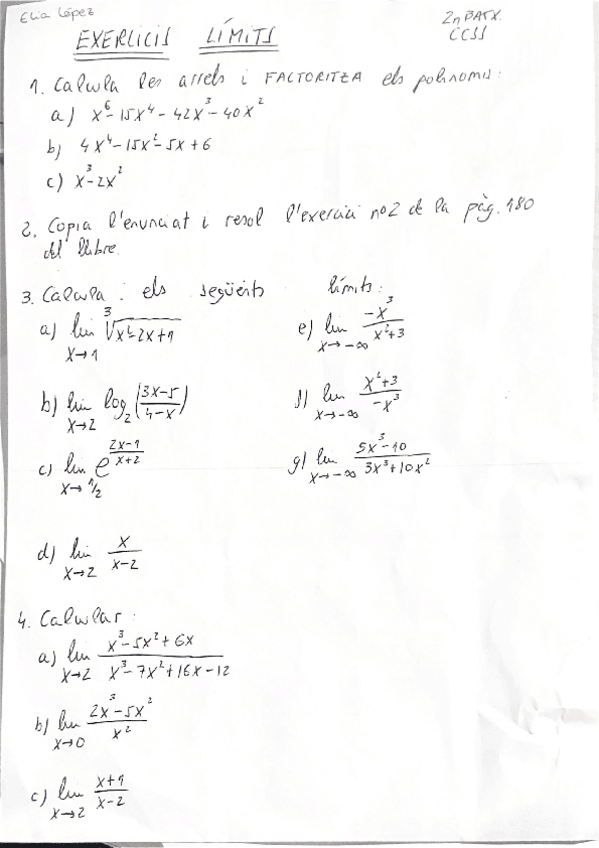 Elia López
2n BATX.
CCSS
EXERCICIS LÍMITS
1. Calcula les arrels i FACTORITZA els polinomis:
a) x⁶-15x⁴-42x³-40x²
b) 4x⁴-15x²-5x+6
c) x³-2x²
2. Copia l'enunciat i resol l'exercici nº2 de la pàg. 180
del llibre.
3. Calcula: els següents límits:
a) lim ∛(x²-2x+1)
x→1
b) lim log₂((3x-5)/(4-x))
x→2
c) lim e^((2x-1)/(x+2))
x→1/2
d) lim x/(x-2)
x→2
e) lim -x³/(x²+3)
x→-∞
f) lim (x²+3)/(-x³)
x→-∞
g) lim (5x³-10)/(3x³+10x²)
x→-∞
4. Calcular:
a) lim (x³-5x²+6x)/(x³-7x²+16x-12)
x→2
b) lim (2x³-5x²)/x²
x→0
c) lim (x+1)/(x-2)
x→2